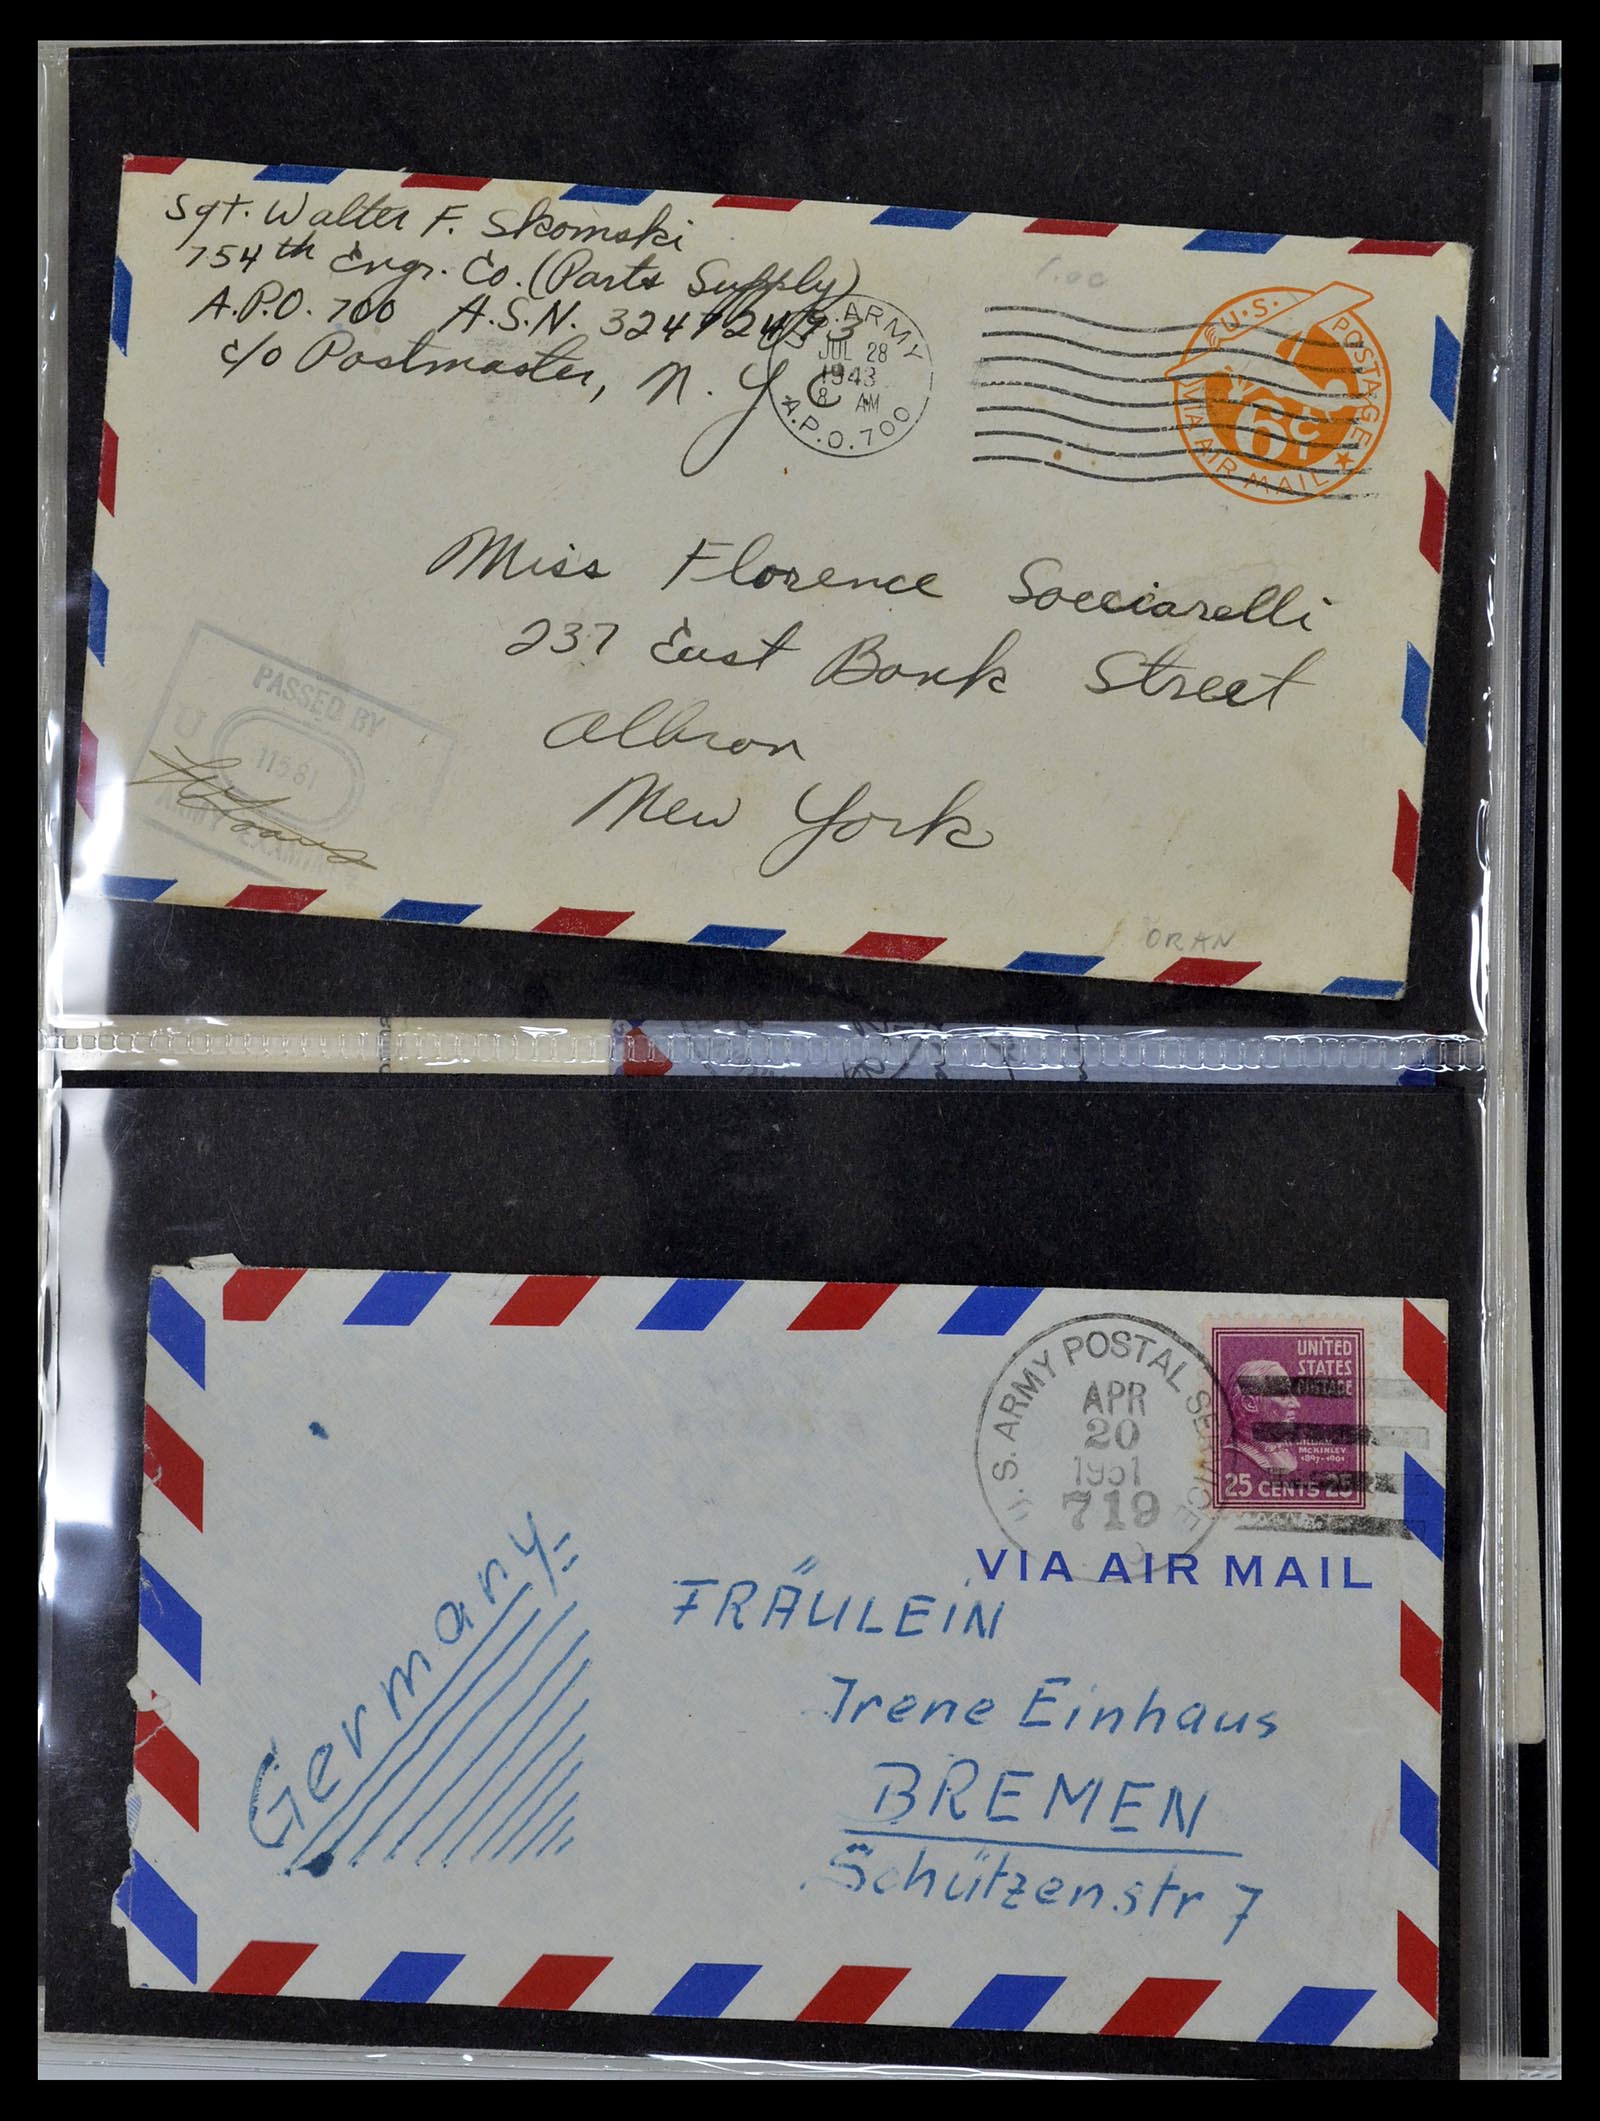 Sgt. Walter F. Skomski
754th Engr. Co. (Parts Supply)
A.P.O. 700 A.S.N. 32472493
c/o Postmaster, N. Y. C
ARMY
JUL 28
1943
8 AM
A.P.O. 700
1.00
U.S. POSTAGE
6¢
VIA AIR MAIL
Miss Florence Socciarelli
237 East Bank Street
Albion
New York
PASSED BY
U
11581
ARMY EXAMINER
ORAN
U.S. ARMY POSTAL SERVICE
APR
20
1951
719
UNITED
STATES
POSTAGE
WILLIAM
MCKINLEY
1897-1901
25 CENTS 25
VIA AIR MAIL
Germany
FRÄULEIN
Irene Einhaus
BREMEN
Schützenstr 7